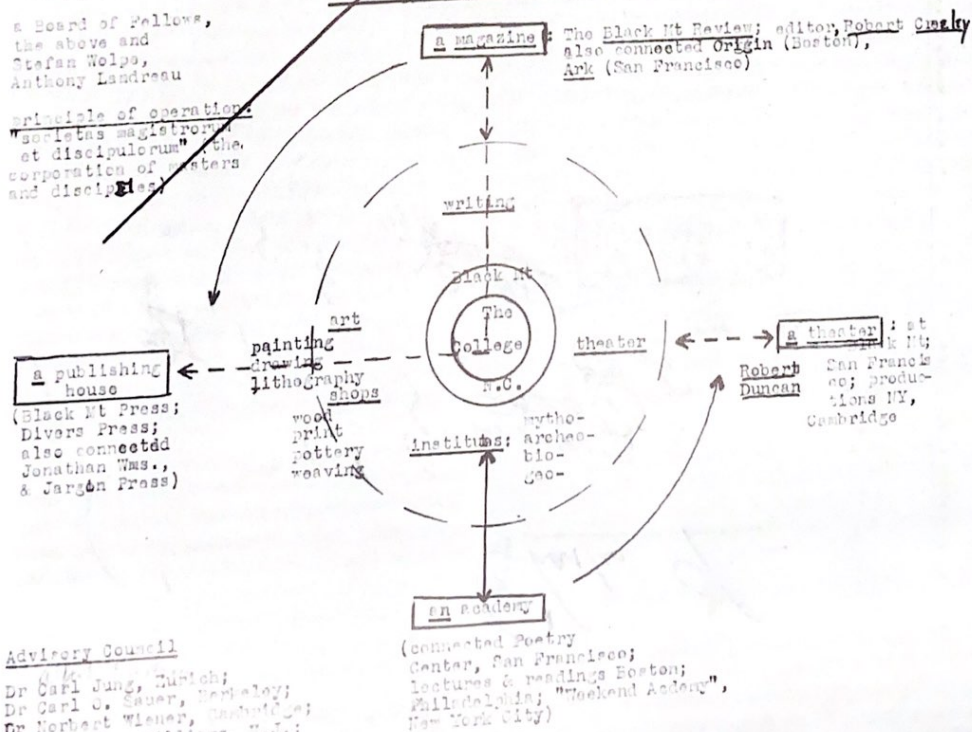 a Board of Fellows,
the above and
Stefan Wolpe,
Anthony Landreau
principle of operation:
"societas magistrorum
et discipulorum" (the
corporation of masters
and disciples)
a magazine : The Black Mt Review; editor, Robert Creeley
also connected Origin (Boston),
Ark (San Francisco)
writing
Black Mt
The
College
N.C.
art
painting
drawing
lithography
shops
wood
print
pottery
weaving
theater
institutes:
mytho-
archeo-
bio-
geo-
a publishing
house
(Black Mt Press;
Divers Press;
also connected
Jonathan Wms.,
& Jargon Press)
a theater : at
Mt;
Robert
Duncan
San Francis
co; produc-
tions NY,
Cambridge
an academy
(connected Poetry
Center, San Francisco;
lectures & readings Boston;
Philadelphia; "Weekend Acdemy",
New York City)
Advisory Council
Dr Carl Jung, Zurich;
Dr Carl O. Sauer, Berkeley;
Dr Norbert Wiener, Cambridge;